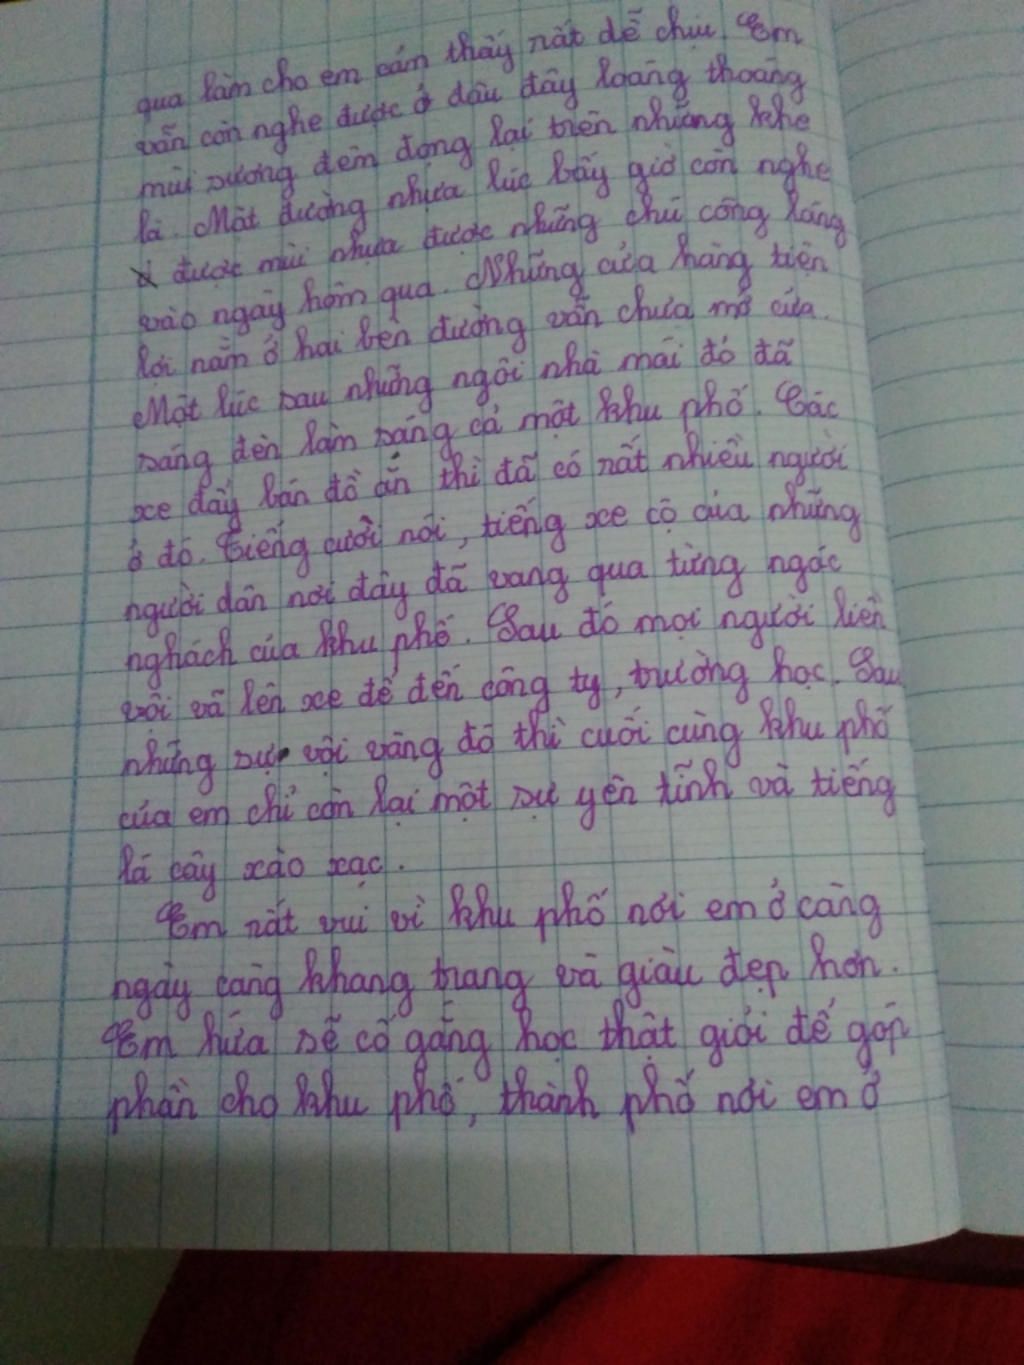 qua làm cho em cảm thấy rất dễ chịu. Em
vẫn còn nghe được ở đâu đây loáng thoáng
mùi sương đêm đọng lại trên những khe
lá. Mặt đường nhựa lúc bấy giờ còn nghe
được mùi nhựa được những chú công láng
vào ngày hôm qua. Những cửa hàng tiện
lợi nằm ở hai bên đường vẫn chưa mở cửa.
Một lúc sau những ngôi nhà mái đỏ đã
sáng đèn làm sáng cả một khu phố. Các
xe đẩy bán đồ ăn thì đã có rất nhiều người
ở đó. Tiếng cười nói, tiếng xe cộ của những
người dân nơi đây đã vang qua từng ngóc
nghách của khu phố. Sau đó mọi người liền
vội vã lên xe để đến công ty, trường học. Sau
những sự vội vàng đó thì cuối cùng khu phố
của em chỉ còn lại một sự yên tĩnh và tiếng
lá cây xào xạc.
Em rất vui vì khu phố nơi em ở càng
ngày càng khang trang và giàu đẹp hơn.
Em hứa sẽ cố gắng học thật giỏi để góp
phần cho khu phố, thành phố nơi em ở